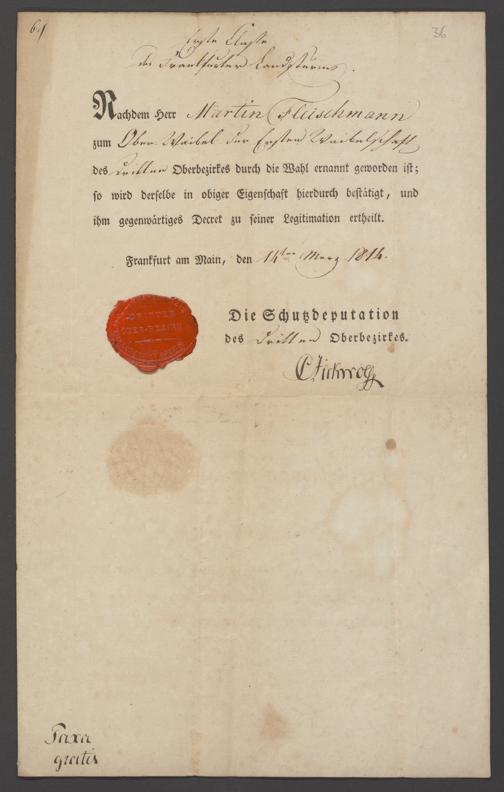 64
36
Erste Classe
des Frankfurter Landsturms.
Nachdem Herr Martin Fleischmann
zum Ober Waibel der Ersten Waibelschaft
des Dritten Oberbezirkes durch die Wahl ernannt geworden ist;
so wird derselbe in obiger Eigenschaft hierdurch bestätigt, und
ihm gegenwärtiges Decret zu seiner Legitimation ertheilt.
Frankfurt am Main, den 14ten März 1814.
DRITTER
OBER-BEZIRK
Die Schutzdeputation
des Dritten Oberbezirkes.
Taxa
gratis